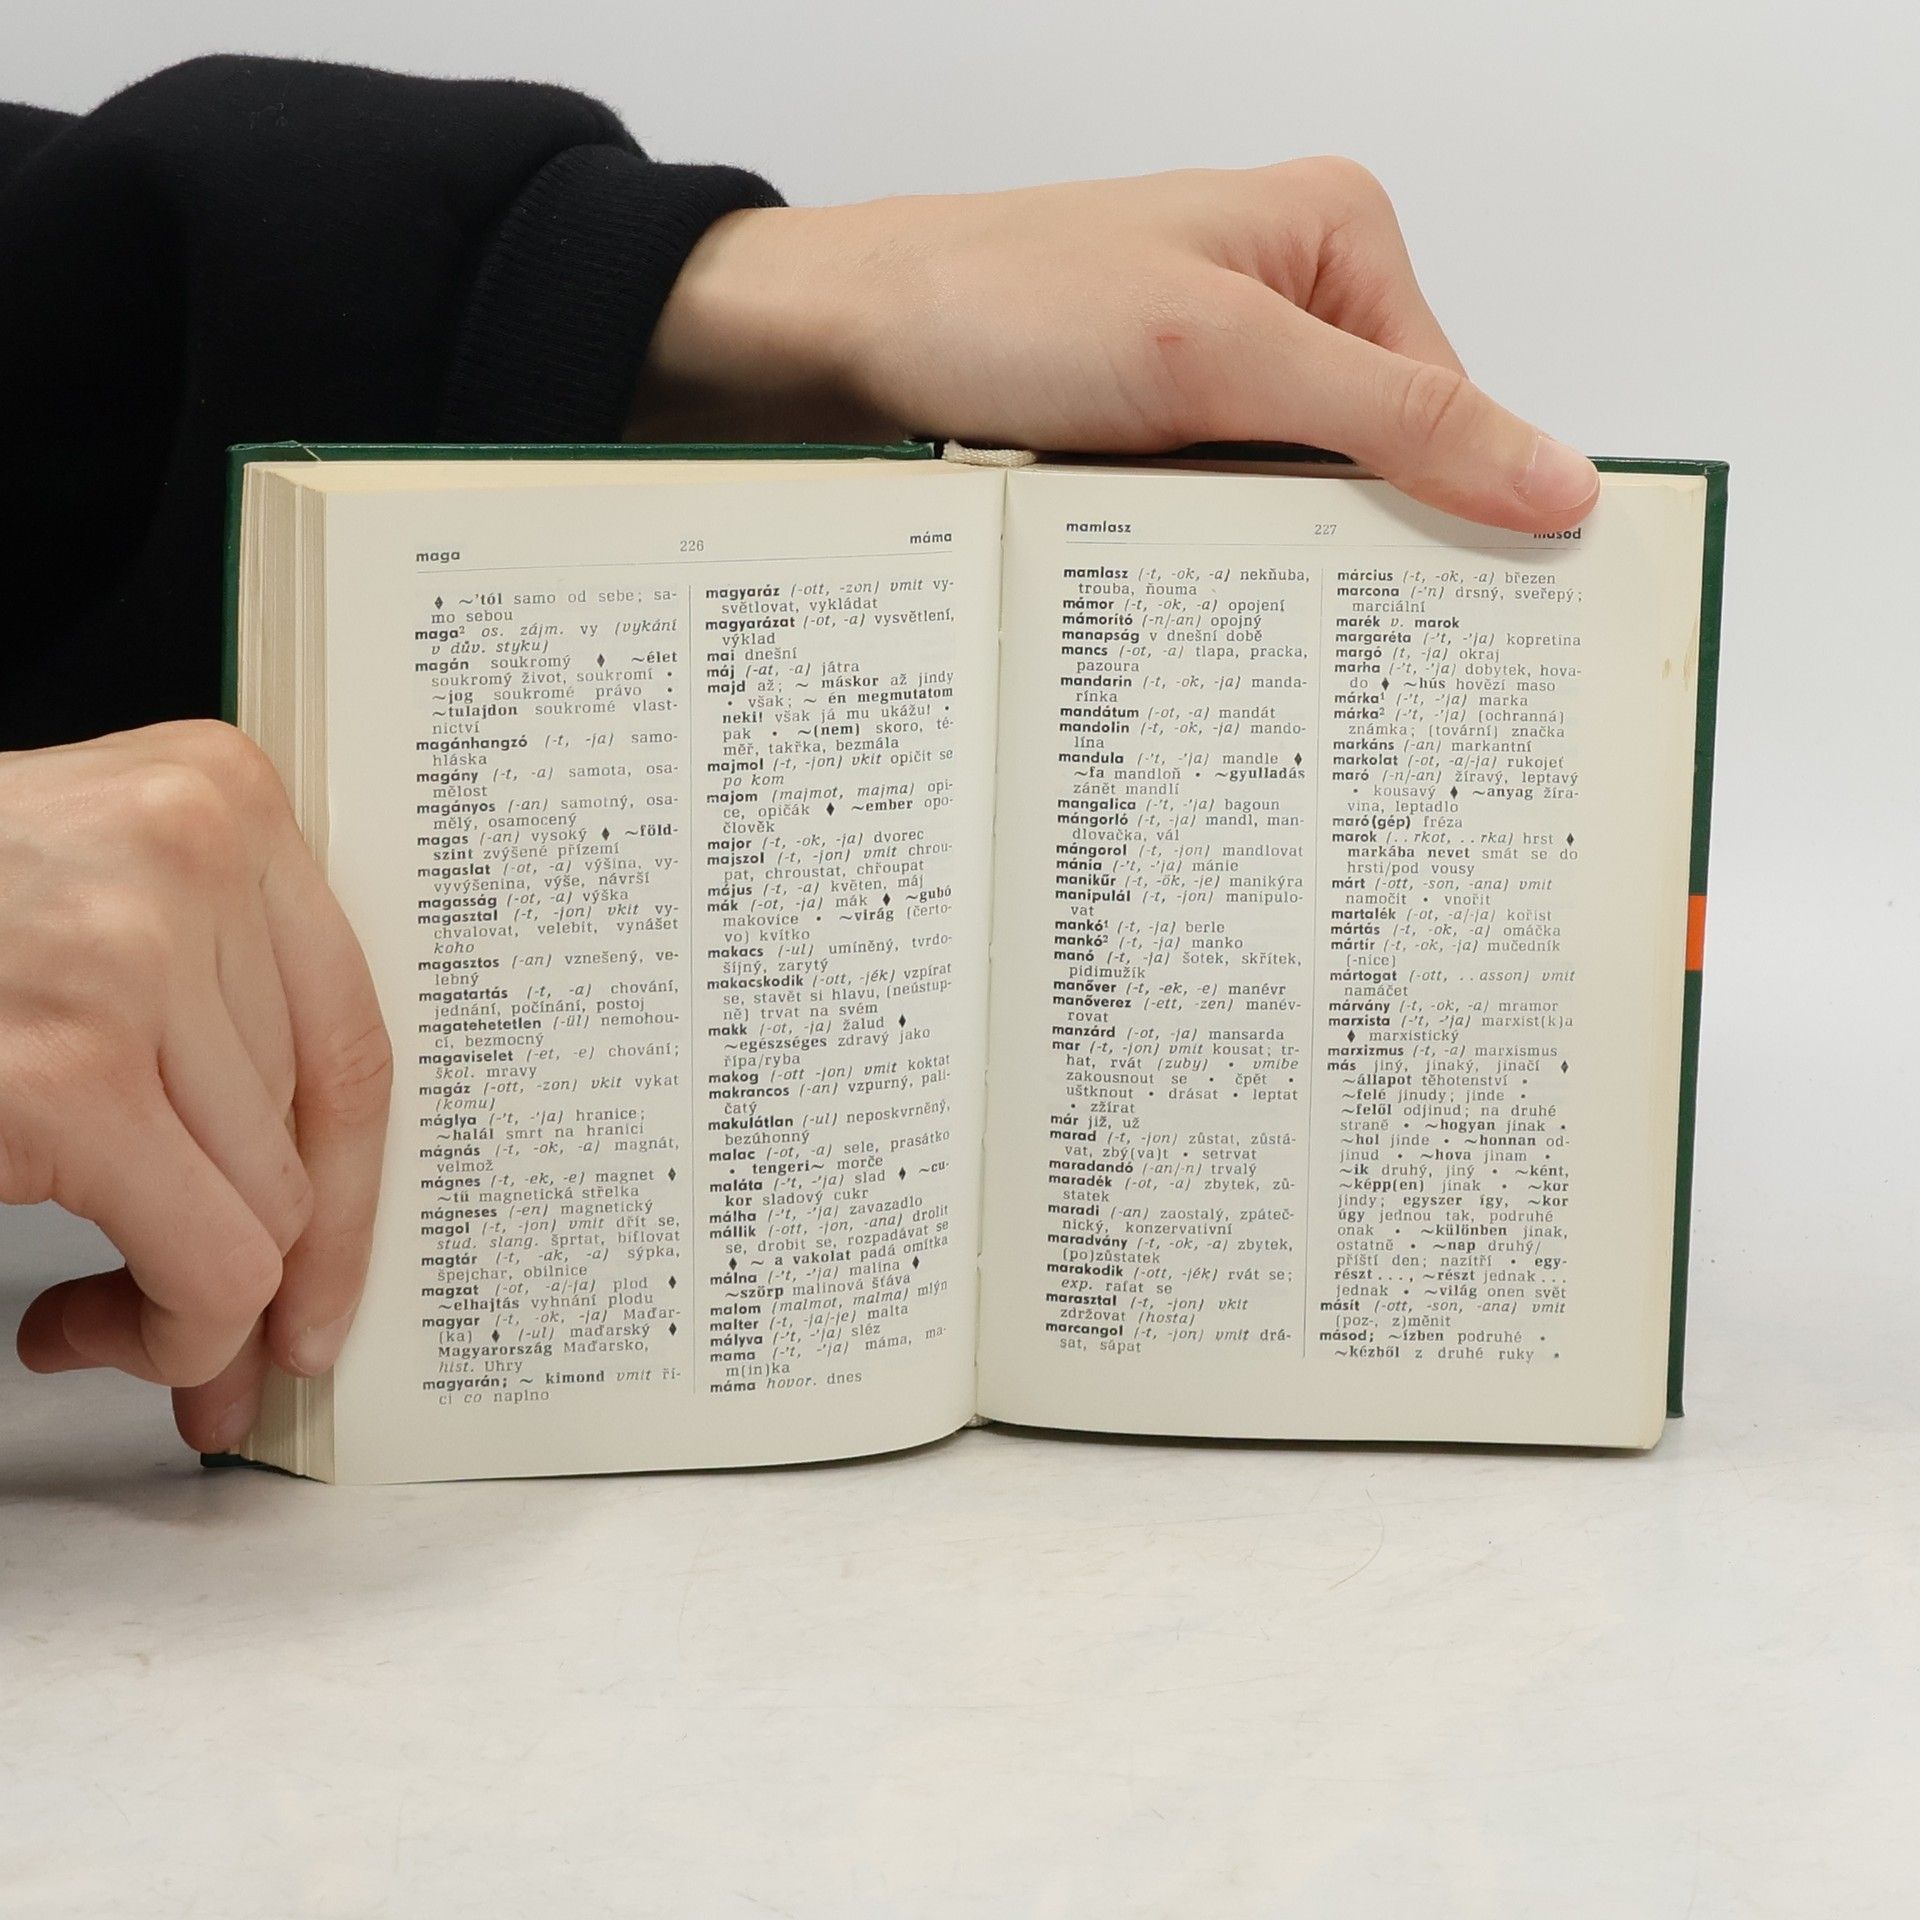 maga 226 máma
♦ ~'tól samo od sebe; sa-
mo sebou
maga² os. zájm. vy (vykání
v dův. styku)
magán soukromý ♦ ~élet
soukromý život, soukromí •
~jog soukromé právo •
~tulajdon soukromé vlast-
nictví
magánhangzó (-t, -ja) samo-
hláska
magány (-t, -a) samota, osa-
mělost
magányos (-an) samotný, osa-
mělý, osamocený
magas (-an) vysoký ♦ ~föld-
szint zvýšené přízemí
magaslat (-ot, -a) výšina, vy-
vyvýšenina, výše, návrší
magasság (-ot, -a) výška
magasztal (-t, -jon) vkit vy-
chvalovat, velebit, vynášet
koho
magasztos (-an) vznešený, ve-
lebný
magatartás (-t, -a) chování,
jednání, počínání, postoj
magatehetetlen (-ül) nemohou-
cí, bezmocný
magaviselet (-et, -e) chování;
škol. mravy
magáz (-ott, -zon) vkit vykat
(komu)
máglya (-'t, -'ja) hranice;
~halál smrt na hranici
mágnás (-t, -ok, -a) magnát,
velmož
mágnes (-t, -ek, -e) magnet ♦
~tű magnetická střelka
mágneses (-en) magnetický
magol (-t, -jon) vmit dřít se,
stud. slang. šprtat, biflovat
magtár (-t, -ak, -a) sýpka,
špejchar, obilnice
magzat (-ot, -a/-ja) plod ♦
~elhajtás vyhnání plodu
magyar (-t, -ok, -ja) Maďar-
(ka) ♦ (-ul) maďarský ♦
Magyarország Maďarsko,
hist. Uhry
magyarán; ~ kimond vmit ří-
ci co naplno
magyaráz (-ott, -zon) vmit vy-
světlovat, vykládat
magyarázat (-ot, -a) vysvětlení,
výklad
mai dnešní
máj (-at, -a) játra
majd až; ~ máskor až jindy
• však; ~ én megmutatom
neki! však já mu ukážu! •
pak • ~(nem) skoro, té-
měř, takřka, bezmála
majmol (-t, -jon) vkit opičit se
po kom
majom (majmot, majma) opi-
ce, opičák ♦ ~ember opo-
člověk
major (-t, -ok, -ja) dvorec
majszol (-t, -jon) vmit chrou-
pat, chroustat, chřoupat
május (-t, -a) květen, máj
mák (-ot, -ja) mák ♦ ~gubó
makovice • ~virág (čerto-
vo) kvítko
makacs (-ul) umíněný, tvrdo-
šíjný, zarytý
makacskodik (-ott, -jék) vzpírat
se, stavět si hlavu, (neústup-
ně) trvat na svém
makk (-ot, -ja) žalud ♦
~egészséges zdravý jako
řípa/ryba
makog (-ott -jon) vmit koktat
makrancos (-an) vzpurný, pali-
čatý
makulátlan (-ul) neposkvrněný,
bezúhonný
malac (-ot, -a) sele, prasátko
• tengeri~ morče
maláta (-'t, -'ja) slad ♦ ~cu-
kor sladový cukr
málha (-'t, -'ja) zavazadlo
mállik (-ott, -jon, -ana) drolit
se, drobit se, rozpadávat se
♦ ~ a vakolat padá omítka
málna (-'t, -'ja) malina ♦
~szörp malinová šťáva
malom (malmot, malma) mlýn
malter (-t, -ja/-je) malta
mályva (-'t, -'ja) sléz
mama (-'t, -'ja) máma, ma-
m(in)ka
máma hovor. dnes
mamlasz 227 másod
mamlasz (-t, -ok, -a) nekňuba,
trouba, ňouma
mámor (-t, -ok, -a) opojení
mámorító (-n/-an) opojný
manapság v dnešní době
mancs (-ot, -a) tlapa, pracka,
pazoura
mandarin (-t, -ok, -ja) manda-
rínka
mandátum (-ot, -a) mandát
mandolin (-t, -ok, -ja) mando-
lína
mandula (-'t, -'ja) mandle ♦
~fa mandloň • ~gyulladás
zánět mandlí
mangalica (-'t, -'ja) bagoun
mángorló (-t, -ja) mandl, man-
dlovačka, vál
mángorol (-t, -jon) mandlovat
mánia (-'t, -'ja) mánie
manikűr (-t, -ök, -je) manikýra
manipulál (-t, -jon) manipulo-
vat
mankó¹ (-t, -ja) berle
mankó² (-t, -ja) manko
manó (-t, -ja) šotek, skřítek,
pidimužík
manőver (-t, -ek, -e) manévr
manőverez (-ett, -zen) manév-
rovat
manzárd (-ot, -ja) mansarda
mar (-t, -jon) vmit kousat; tr-
hat, rvát (zuby) • vmibe
zakousnout se • čpět •
uštknout • drásat • leptat
• zžírat
már již, už
marad (-t, -jon) zůstat, zůstá-
vat, zbý(va)t • setrvat
maradandó (-an/-n) trvalý
maradék (-ot, -a) zbytek, zů-
statek
maradi (-an) zaostalý, zpáteč-
nický, konzervativní
maradvány (-t, -ok, -a) zbytek,
(po)zůstatek
marakodik (-ott, -jék) rvát se;
exp. rafat se
marasztal (-t, -jon) vkit
zdržovat (hosta)
marcangol (-t, -jon) vmit drá-
sat, sápat
március (-t, -ok, -a) březen
marcona (-'n) drsný, sveřepý;
marciální
marék v. marok
margaréta (-'t, -'ja) kopretina
margó (t, -ja) okraj
marha (-'t, -'ja) dobytek, hova-
do ♦ ~hús hovězí maso
márka¹ (-'t, -'ja) marka
márka² (-'t, -'ja) (ochranná)
známka; (tovární) značka
markáns (-an) markantní
markolat (-ot, -a/-ja) rukojeť
maró (-n/-an) žíravý, leptavý
• kousavý ♦ ~anyag žíra-
vina, leptadlo
maró(gép) fréza
marok (..rkot, ..rka) hrst ♦
markába nevet smát se do
hrsti/pod vousy
márt (-ott, -son, -ana) vmit
namočit • vnořit
martalék (-ot, -a/-ja) kořist
mártás (-t, -ok, -a) omáčka
mártír (-t, -ok, -ja) mučedník
(-nice)
mártogat (-ott, ..asson) vmit
namáčet
márvány (-t, -ok, -a) mramor
marxista (-'t, -'ja) marxist(k)a
♦ marxistický
marxizmus (-t, -a) marxismus
más jiný, jinaký, jinačí ♦
~állapot těhotenství •
~felé jinudy; jinde •
~felől odjinud; na druhé
straně • ~hogyan jinak •
~hol jinde • ~honnan od-
jinud • ~hova jinam •
~ik druhý, jiný • ~ként,
~képp(en) jinak • ~kor
jindy; egyszer így, ~kor
úgy jednou tak, podruhé
onak • ~különben jinak,
ostatně • ~nap druhý/
příští den; nazítří • egy-
részt..., ~részt jednak...
jednak • ~világ onen svět
másít (-ott, -son, -ana) vmit
(poz-, z)měnit
másod; ~ízben podruhé •
~kézből z druhé ruky •